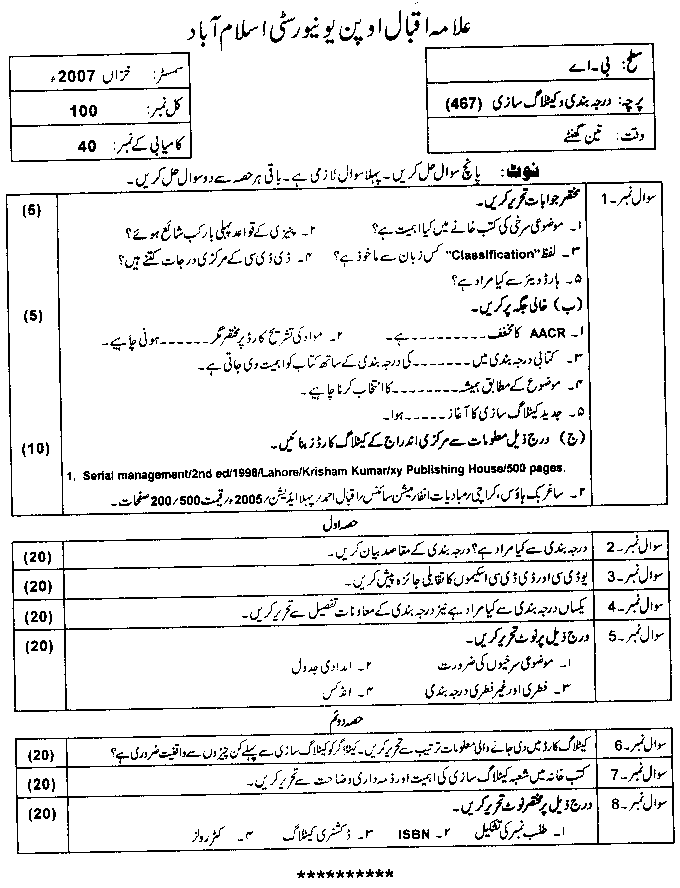 علامہ اقبال اوپن یونیورسٹی اسلام آباد
سطح: بی۔اے
سمسٹر: خزاں 2007ء
پرچہ: درجہ بندی و کیٹلاگ سازی (467)
کل نمبر: 100
وقت: تین گھنٹے
کامیابی کے نمبر: 40
نوٹ: پانچ سوال حل کریں۔ پہلا سوال لازمی ہے۔ باقی ہر حصہ سے دو سوال حل کریں۔
سوال نمبر۔1 مختصر جوابات تحریر کریں۔ (5)
۱۔ موضوعی سرخی کی کتب خانے میں کیا اہمیت ہے؟ ۲۔ پنیزی کے قواعد پہلی بار کب شائع ہوئے؟
۳۔ لفظ "Classification" کس زبان سے ماخوذ ہے؟ ۴۔ ڈی ڈی سی کے مرکزی درجات کتنے ہیں؟
۵۔ ہارڈویئر سے کیا مراد ہے؟
(ب) خالی جگہ پر کریں۔ (5)
۱۔ AACR کا مخفف ---------- ہے۔ ۲۔ مواد کی تشریح کارڈ پر مختصر مگر ------ ہونی چاہیے۔
۳۔ کتابی درجہ بندی میں ------- کی درجہ بندی کے ساتھ کتاب کو اہمیت دی جاتی ہے۔
۴۔ موضوع کے مطابق ہمیشہ -------- کا انتخاب کرنا چاہیے۔
۵۔ جدید کیٹلاگ سازی کا آغاز ----- ہوا۔
(ج) درج ذیل معلومات سے مرکزی اندراج کے کیٹلاگ کارڈز بنائیں۔ (10)
1. Serial management/2nd ed/1998/Lahore/Krisham Kumar/xy Publishing House/500 pages.
۲۔ ساغر بک ہاؤس، کراچی/مبادیات انفارمیشن سائنس/اقبال احمد/پہلا ایڈیشن/2005ء/قیمت 500/200 صفحات۔
حصہ اول
سوال نمبر۔2 درجہ بندی سے کیا مراد ہے؟ درجہ بندی کے مقاصد بیان کریں۔ (20)
سوال نمبر۔3 یو ڈی سی اور ڈی ڈی سی اسکیموں کا تقابلی جائزہ پیش کریں۔ (20)
سوال نمبر۔4 یکساں درجہ بندی سے کیا مراد ہے نیز درجہ بندی کے معاونات تفصیل سے تحریر کریں۔ (20)
سوال نمبر۔5 درج ذیل پر نوٹ تحریر کریں۔ (20)
۱۔ موضوعی سرخیوں کی ضرورت ۲۔ امدادی جدول
۳۔ فطری اور غیر فطری درجہ بندی ۴۔ انڈکس
حصہ دوئم
سوال نمبر۔6 کیٹلاگ کارڈ میں دی جانے والی معلومات ترتیب سے تحریر کریں۔ کیٹلاگر کو کیٹلاگ سازی سے پہلے کن چیزوں سے واقفیت ضروری ہے؟ (20)
سوال نمبر۔7 کتب خانہ میں شعبہ کیٹلاگ سازی کی اہمیت اور ذمہ داری وضاحت سے تحریر کریں۔ (20)
سوال نمبر۔8 درج ذیل پر مختصر نوٹ تحریر کریں۔ (20)
۱۔ طلب نمبر کی تشکیل ۲۔ ISBN ۳۔ ڈکشنری کیٹلاگ ۴۔ کٹر رولز
**********